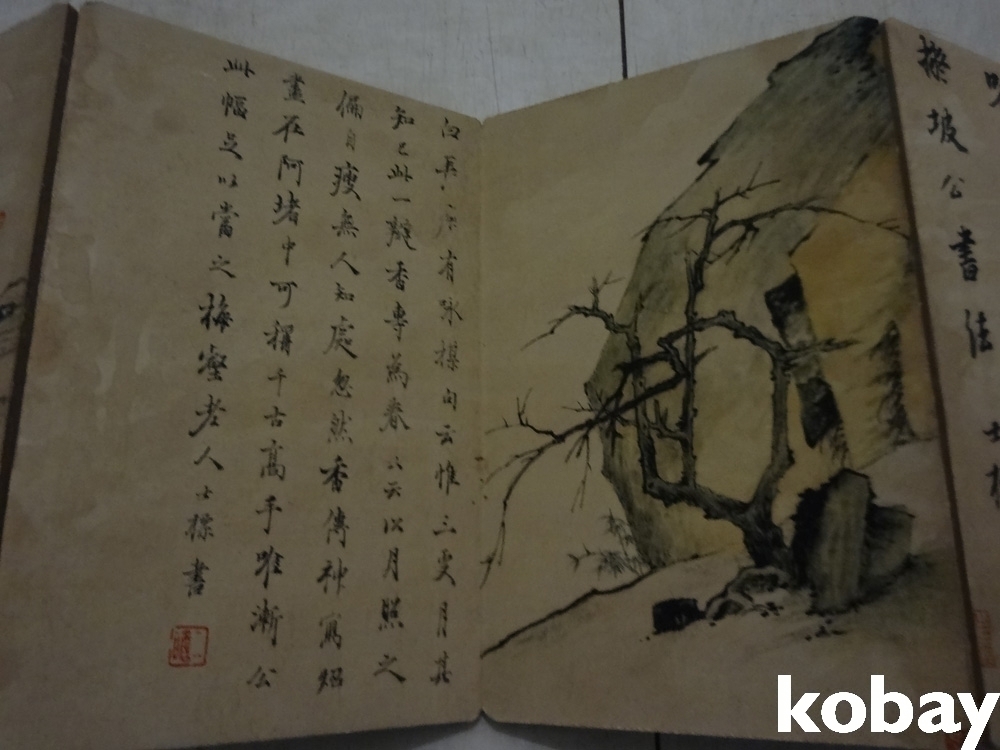 坡公書法
有咏楳句云惟三更月其
知己此一瓣香專為春々云以月照之
偏自瘦無人知處忽然香傳神寫照
盡在阿堵中可稱千古高手唯漸公
此幅足以當之梅壑老人士標書
kobay